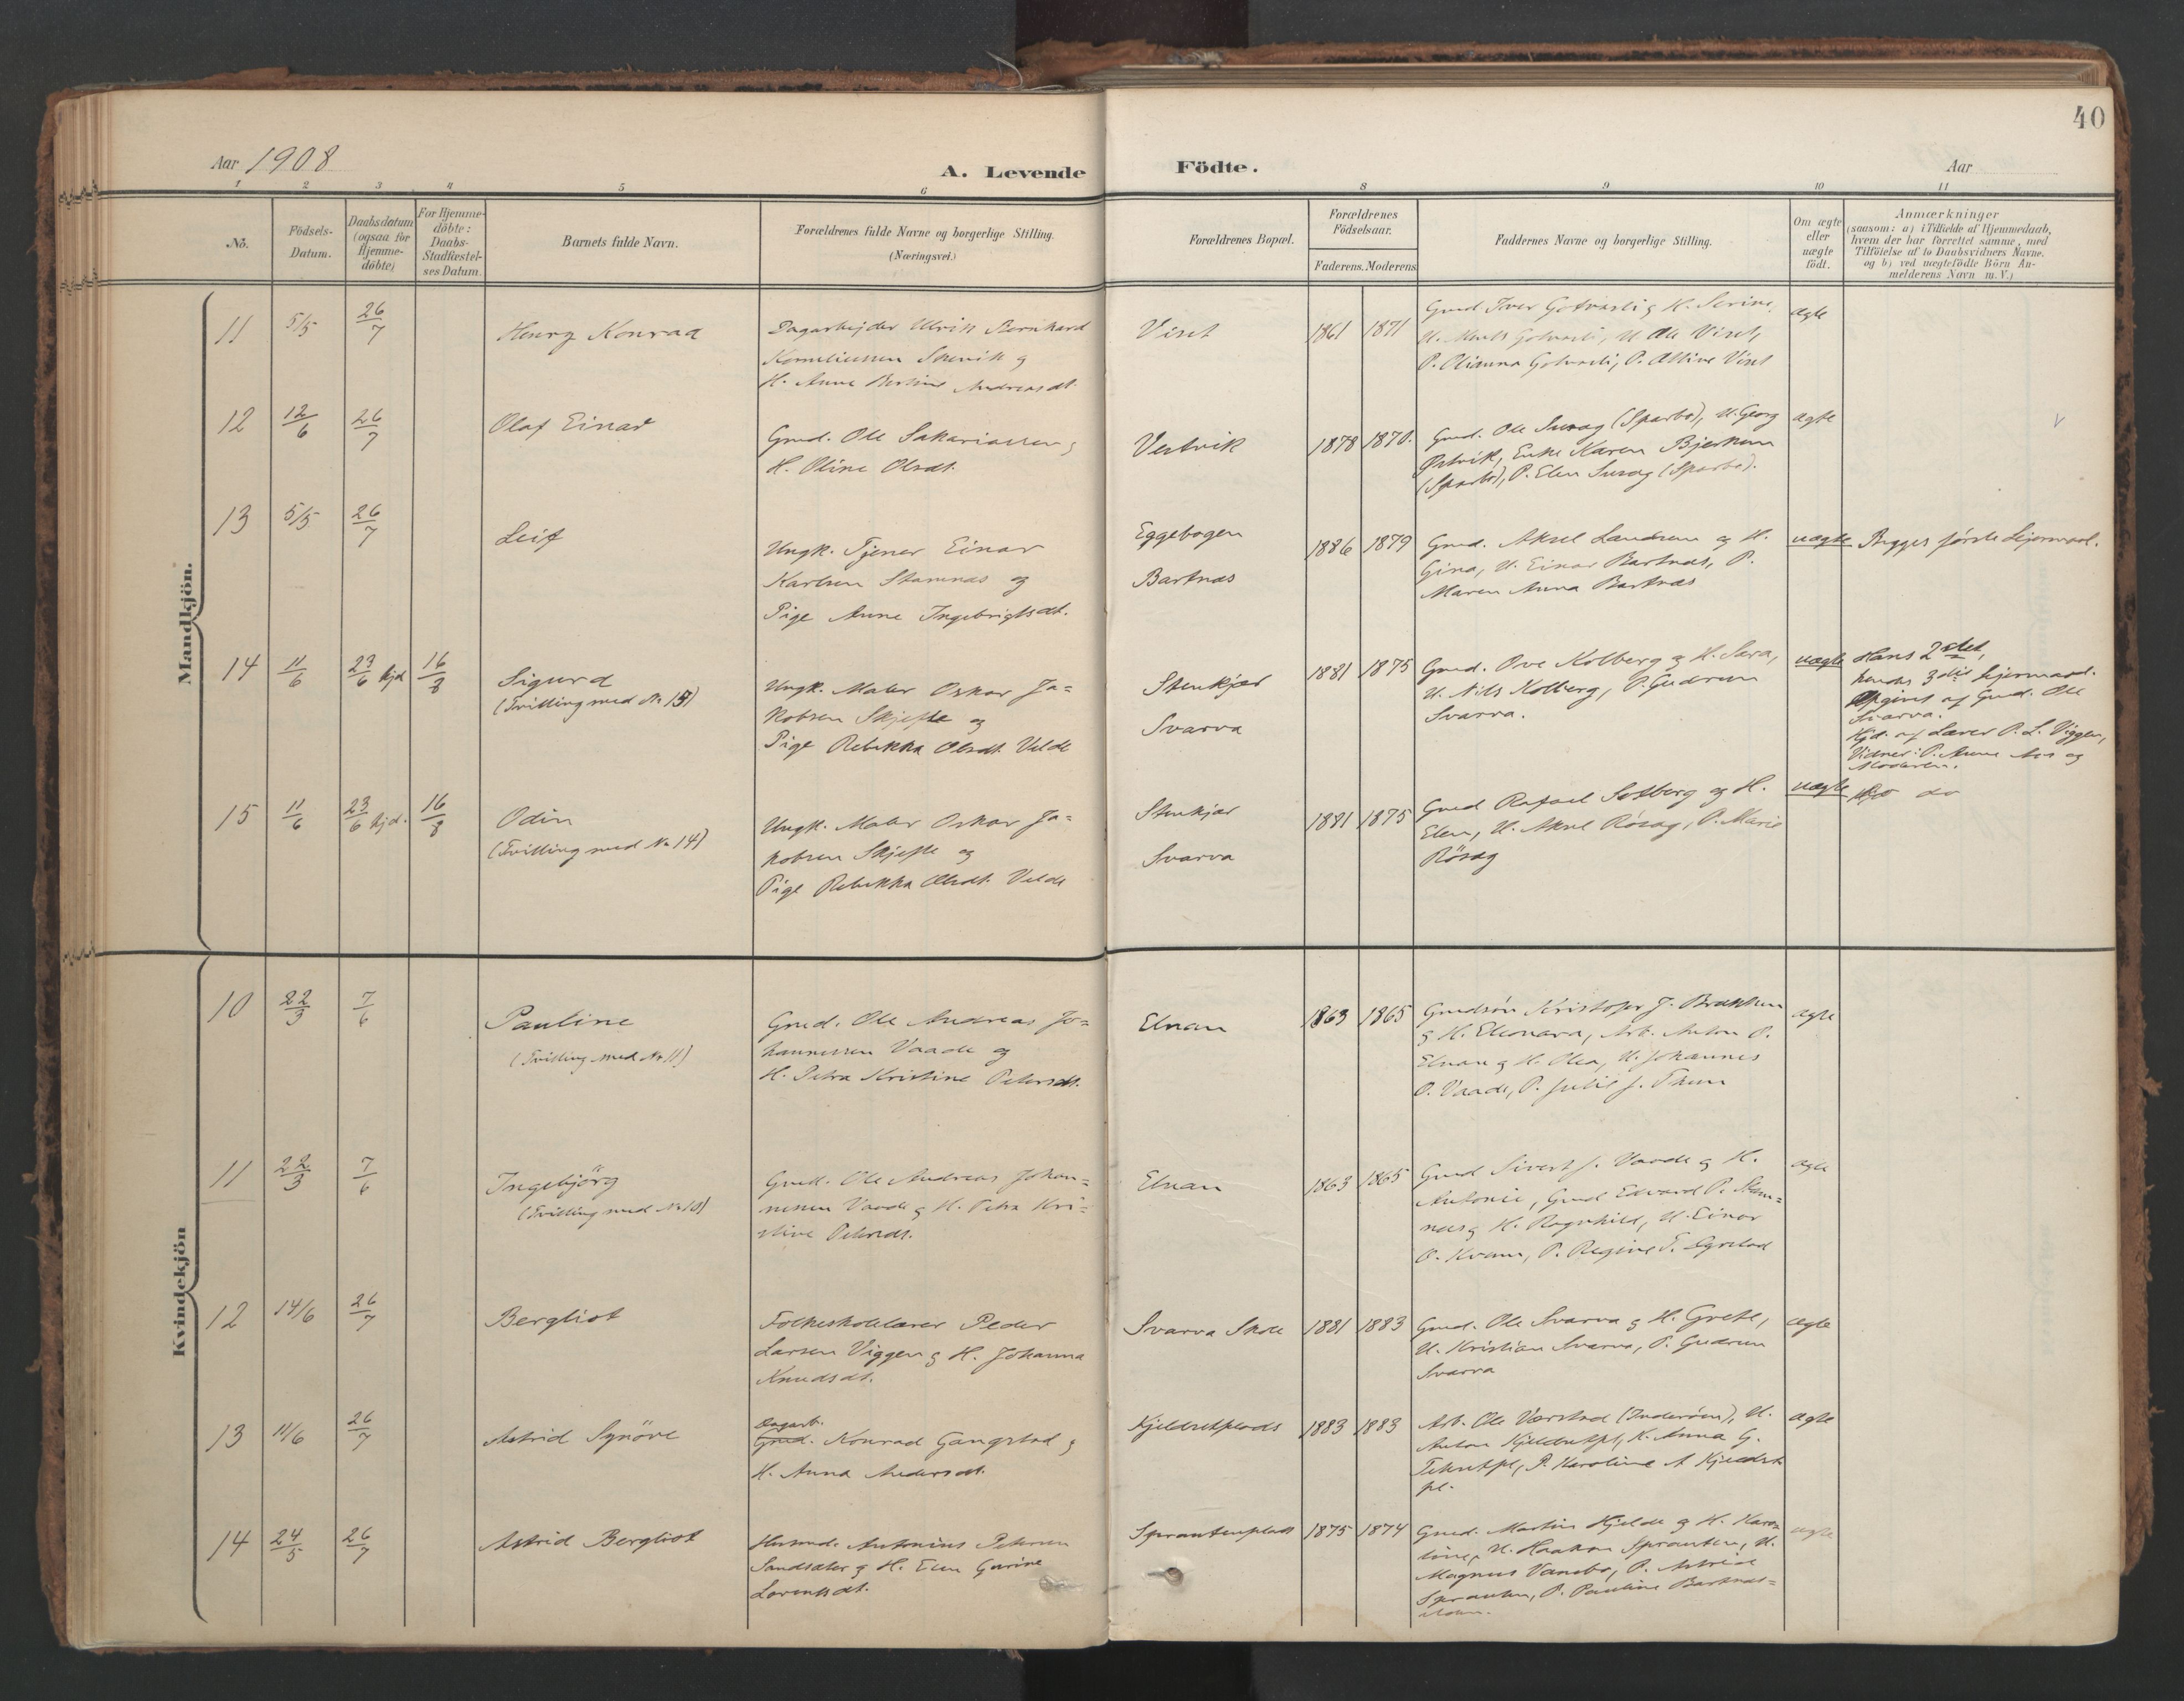 40
Aar 1908
A. Levende
Födte.
Aar
1 2 3 4 5 6 8 9 10 11
No.
Födsels-
Datum.
Daabsdatum
(ogsaa for
Hjemme-
döbte)
For Hjemme-
döbte:
Daabs-
Stadfæstel-
ses Datum.
Barnets fulde Navn.
Forældrenes fulde Navne og borgerlige Stilling.
(Næringsvei.)
Forældrenes Bopæl.
Forældrenes
Födselsaar.
Faderens. Moderens.
Faddernes Navne og borgerlige Stilling.
Om ægte
eller
uægte
födt.
Anmærkninger
(saasom: a) i Tilfælde af Hjemmedaab,
hvem der har forrettet samme, med
Tilföielse af to Daabsvidners Navne.
og b) ved uægtefödte Börn An-
melderens Navn m. V.)
Mandkjön.
11 5/5 26/7
Henry Konrad
Dagarbejder Ulrik Bernhard
Korneliussen Stenvik &
H. Anna Bertine Andreasdt.
Viset
1861 1871
Gmd. Iver Gotvasli & H. Serine,
U. Gotvasli, U Ole Viset,
P. Olianna Gotvasli, P. Viset
ægte
12 12/6 26/7
Olaf Einar
Gmd. Ole Sakariassen &
H. Oline Olsdt.
Vestvik
1878 1870.
Gmd. Ole (Sparbo), U. Georg
Østvik, Enke Karen Bjerkem
(Sparbo), P. Elen (Sparbo).
ægte
13 5/5 26/7
Leif
Ungk. Tjener Einar
Karlsen Stamnas og
Pige Anne Ingebrigtsdt.
Eggebogen
Bartnas
1886 1879
Gmd. Aksel Landsem og H.
Gina, U. Einar Bartnas, P.
Maren Anna Bartnas
uægte
Begges første Lejermaal.
14 11/6 23/6 hjd 16/8
Sigurd
(Tvilling med No 15)
Ungk. Maler Oskar Ja=
kobsen Skjefte og
Pige Rebekka Olsdt. Velde
Stenkjær
Svarva
1881 1875
Gmd. Ove Kolberg & H. Sara,
U. Nils Kolberg, P. Gudrun
Svarva.
uægte
Hans 2det,
hendes 3die Lejermaal.
Opgivet af Gmd. Ole
Svarva.
Hjd. af Lærer P. L. Viggen,
Vidner: P. Anna Aas og
Moderen.
15 11/6 23/6 hjd. 16/8
Odin
(Tvilling med No 14)
Ungk. Maler Oskar Ja=
kobsen Skjefte og
Pige Rebekka Olsdt. Velde
Stenkjær
Svarva
1881 1875
Gmd Rafael Solberg og H.
Elen, U. Aksel Rösæg, P. Marie
Rösæg
uægte
do
Kvindekjön
10 22/3 7/6
Pauline
(Tvilling med No 11)
Gmd. Ole Andreas Jo=
hannessen Vaade og
H. Petra Kristine Petersdt.
Elnan
1863 1865
Gmdsön Kristofer J. Brakken
& H. Eleonara, Arb. Anton P.
Elnan & H. Olea, U. Johannes
O. Vaade, P. Julie J. Thun
ægte
11 22/3 7/6
Ingebjörg
(Tvilling med No 10)
Gmd. Ole Andreas Johan=
nessen Vaade & H. Petra Kri=
stine Petersdt.
Elnan
1863 1865
Gmd Sivert J. Vaade & H.
Antonie, Gmd Edvard P. Stam=
nes & H. Ragnhild, U. Einar
O. Kvam, P. Regine T.
ægte
12 14/6 26/7
Bergliot
Folkeskolelærer Peder
Larsen Viggen & H. Johanna
Knudsdt.
Svarva Skole
1881 1883
Gmd. Ole Svarva & H. Grete,
U. Kristian Svarva, P. Gudrun
Svarva
ægte
13 11/6 26/7
Astrid Synöve
Dagarb.
Gmd. Konrad Gangstad &
H. Anna Andersdt.
Kjeldsetplads
1883 1883
Arb. Ole Værstad (Inderöen), U.
Anton Kjeldsetpl, K. Anna G.
P. Karoline A Kjeldset
pl.
ægte
14 24/5 26/7
Astrid Bergliot
Husmd. Antonius Petersen
Sandsater & H. Elen Garine
Lorentsdt.
Sprautenplads
1875 1874
Gmd. Martin Hjelde & H. Karo=
line, U. Haakon Sprauten, U.
Magnus Vanebo, P. Astrid
Sprauten, P. Pauline Bartnas=
ægte